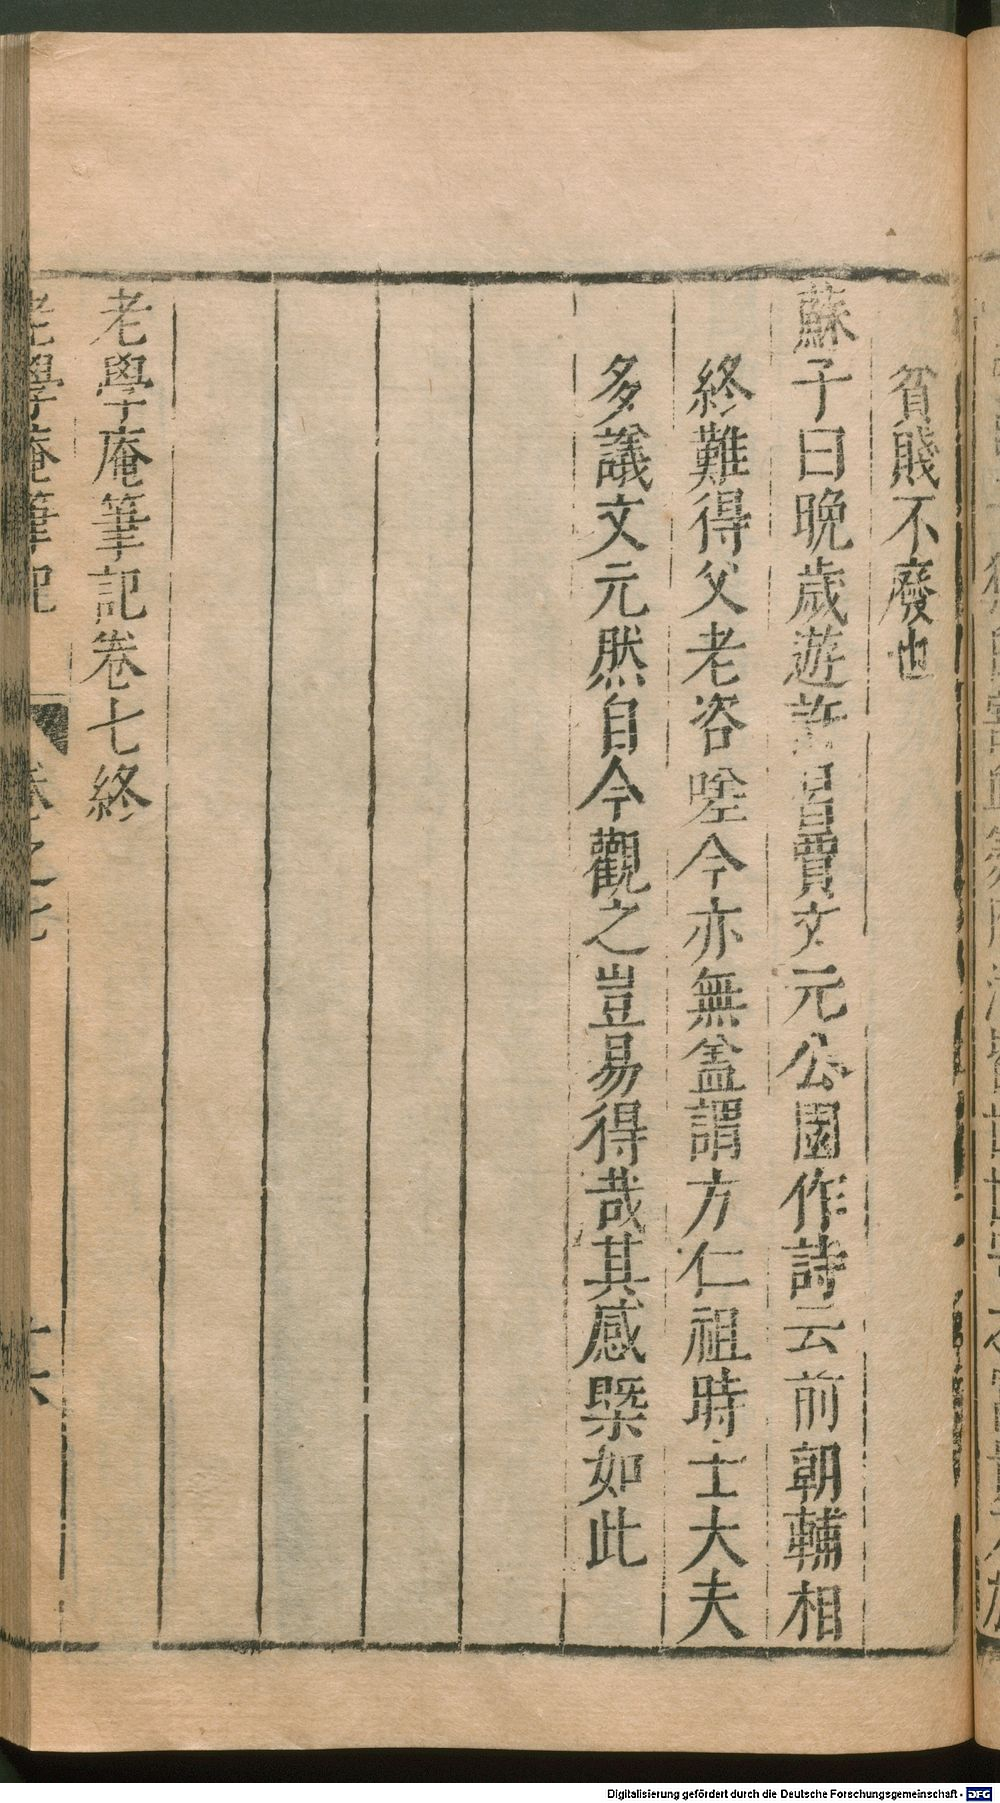 貧賤不廢也
蘇子曰晚歲遊許昌賈文元公園作詩云前朝輔相
終難得父老咨嗟今亦無盖謂方仁祖時士大夫
多議文元然自今觀之豈易得哉其感槩如此
老學庵筆記卷七終
老學庵筆記 卷之七 十六
Digitalisierung gefördert durch die Deutsche Forschungsgemeinschaft - DFG